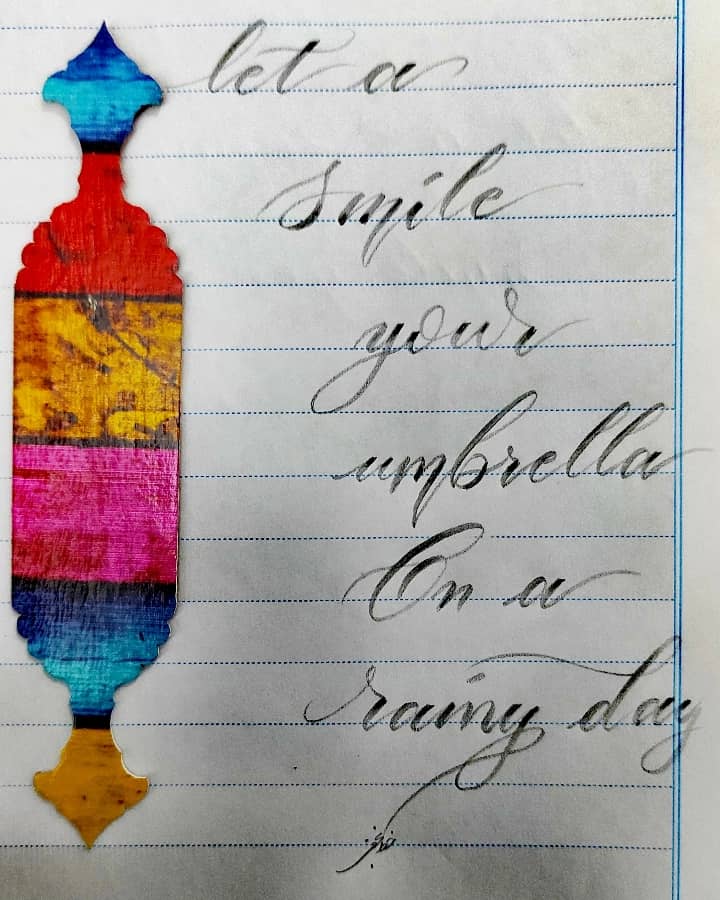 let a
smile
your
umbrella
On a
rainy day